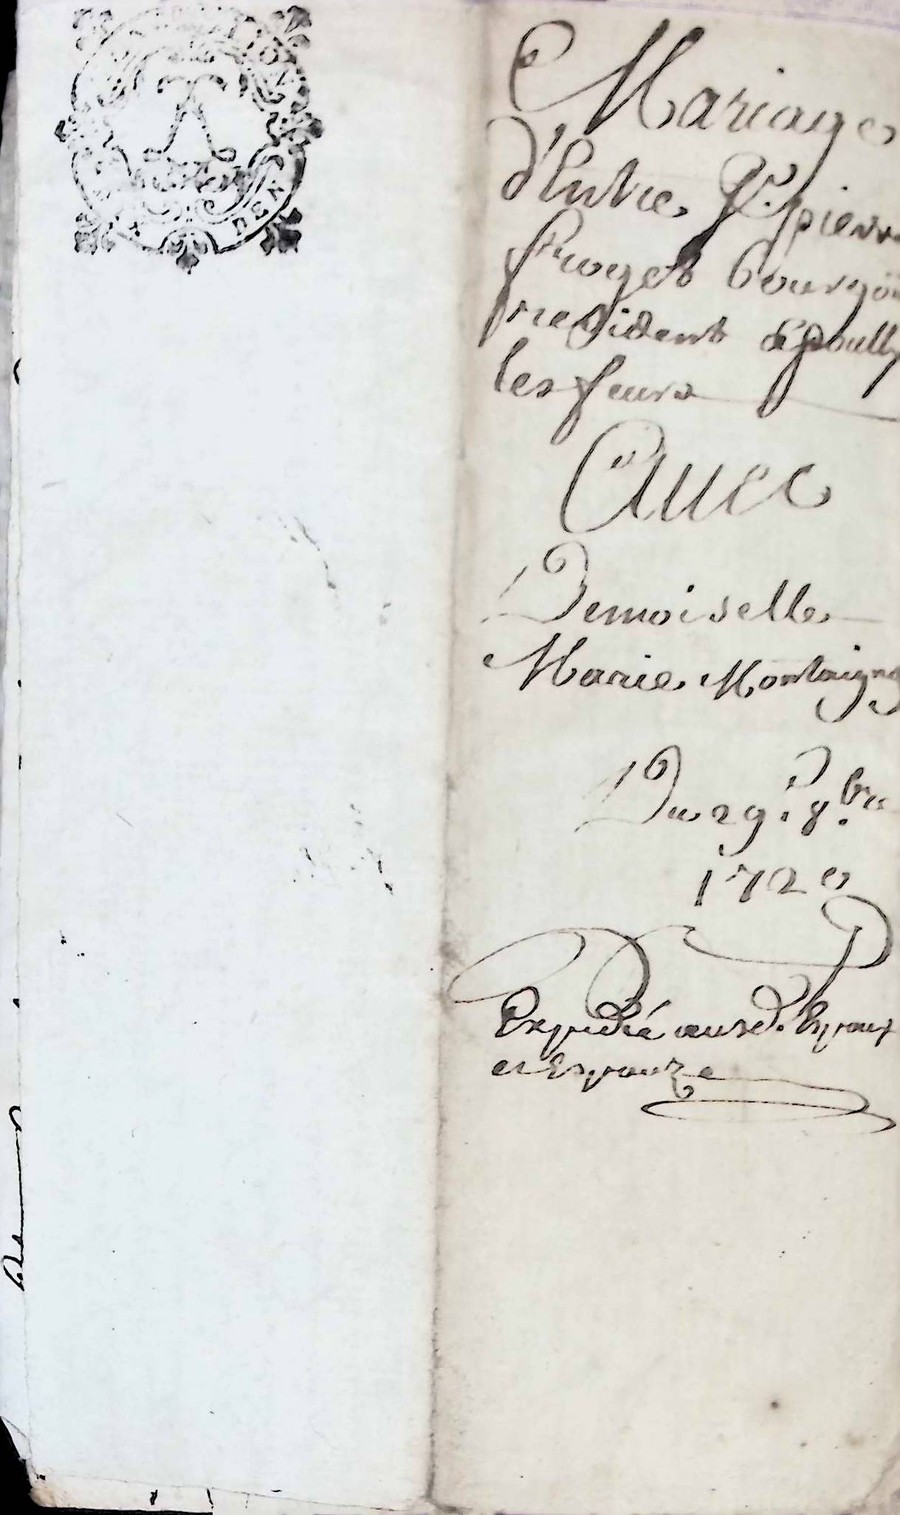 Mariage
d'Entre Sr. pierre
froget bourgoi
residant a pouilly
les feurs
Avec
Demoiselle
Marie Montaigne
Du 29e. 8.bre
1720
Expedié ausd. Epoux
et Espouze